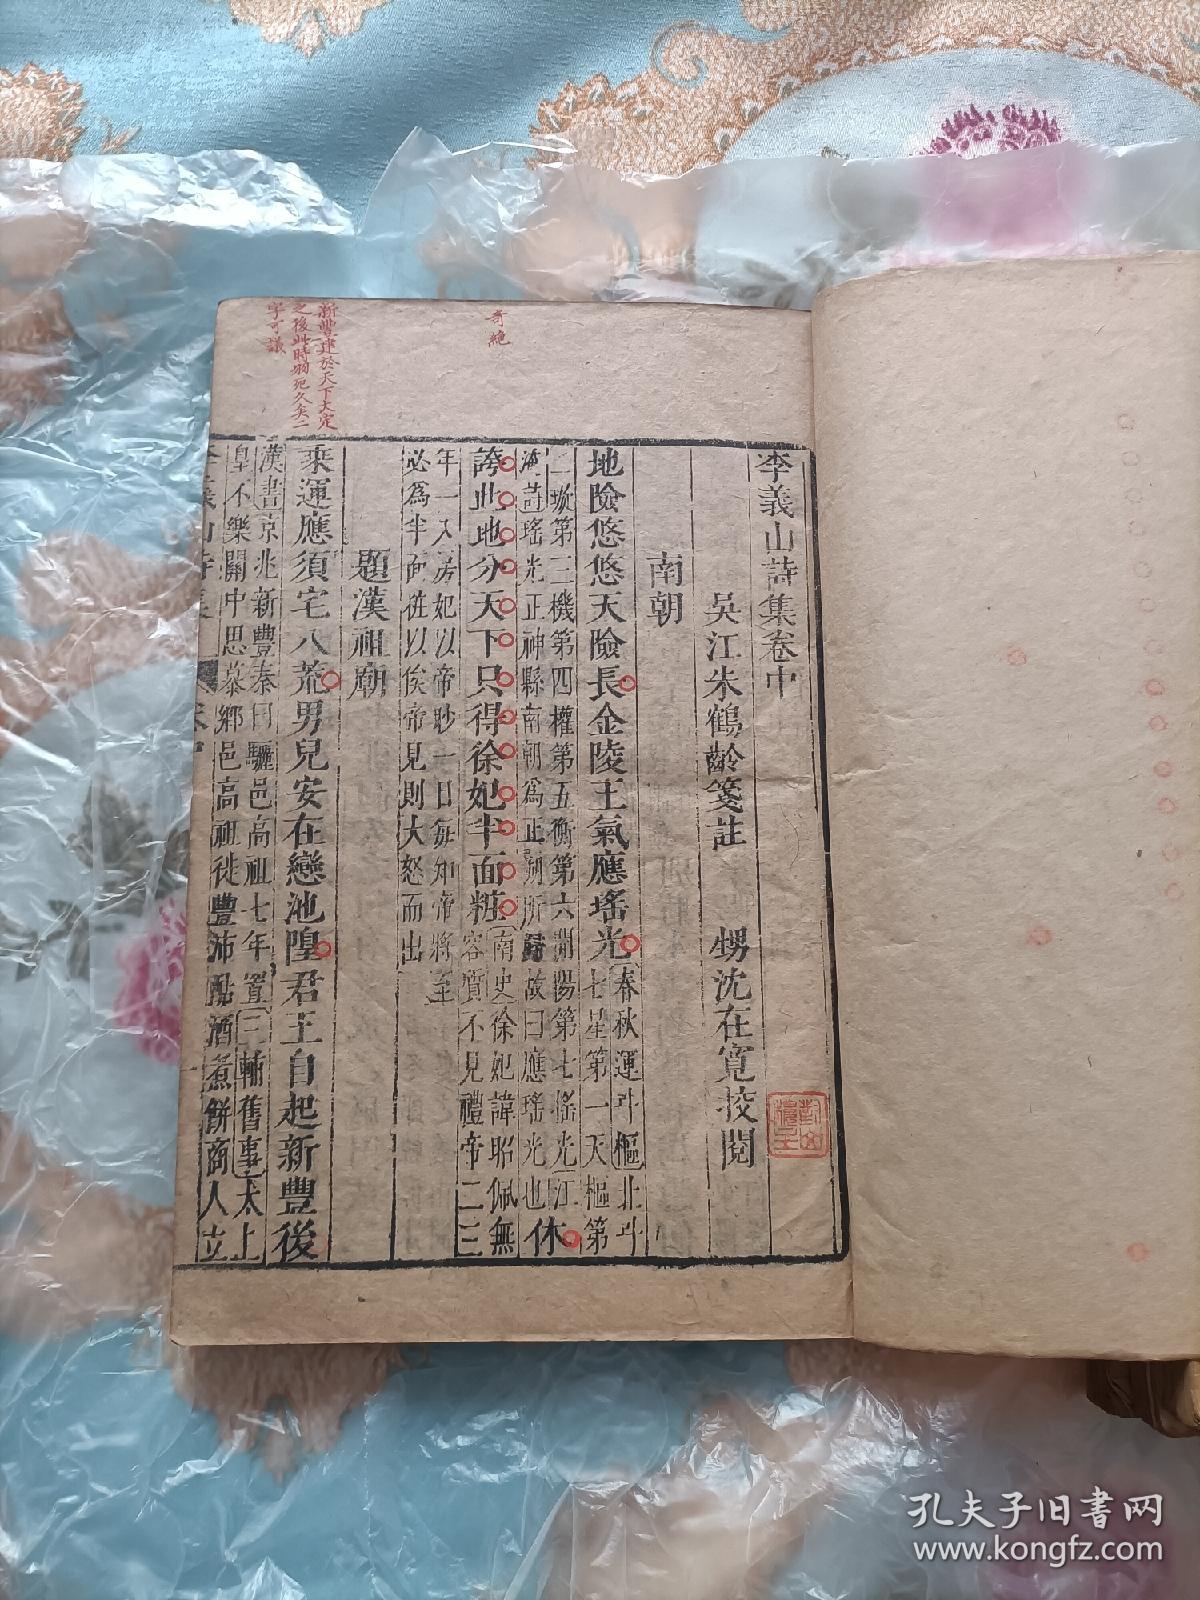 李義山詩集卷中
吳江朱鶴齡箋註 甥沈在寬挍閱
南朝
地險悠悠天險長金陵王氣應瑤光
春秋運斗樞北斗
七星第一天樞第
二璇第三機第四權第五衡第六開陽第七搖光江
淹詩瑤光正神縣南朝為正朔所歸故曰應瑤光也
休
誇此地分天下只得徐妃半面粧
南史徐妃諱昭佩無
容質不見禮帝二三
年一入房妃以帝眇一目每知帝將至
必為半面粧以俟帝見則大怒而出
題漢祖廟
乘運應須宅八荒男兒安在戀池隍君王自起新豐後
漢書京兆新豐秦曰驪邑高祖七年置三輔舊事太上
皇不樂關中思慕鄉邑高祖徙豐沛酤酒煮餅商人立
奇絕
新豐建於天下大定
之後此時羽死久矣二
字可議
孔夫子旧書网
www.kongfz.com